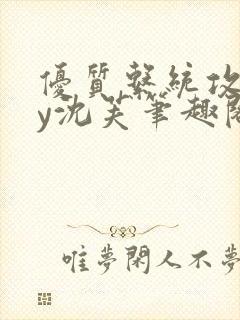 優質繫統攻
y沈芙筆趣閣
唯夢閑人不夢